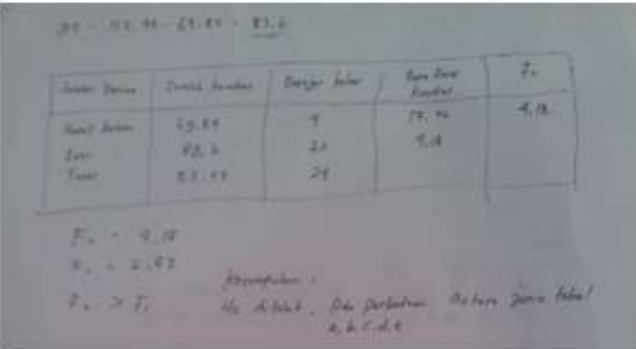 = 153.44 - 69.84 = 83.6
Sumber Variasi | Jumlah Kuadrat | Derajat bebas | Rata Rata Kuadrat | F₀
69.84 | 4 | 17.46 | 4.18
83.6 | 20 | 4.18
Total | 153.44 | 24
F₀ = 4.18
= 2.87
F₀ > F₁
Kesimpulan :
H₀ ditolak. Ada perbedaan Antara jenis tabel
a, b, c, d, e